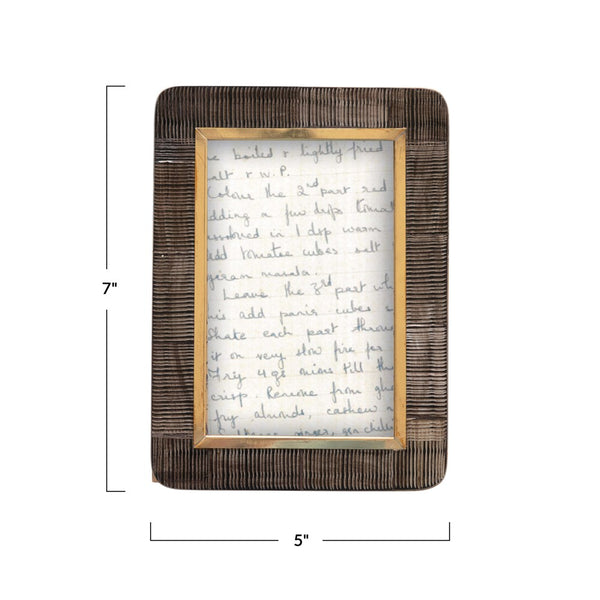 e boiled & lightly fried
alt & W.P.
Colour the 2nd part red
dding a few drps tomat
ssolved in 1 dsp warm
dd tomatoe cubes salt
garam masala.
Leave the 3rd part wh
his add panir cubes s
Shake each part throu
it on very slow fire for
Fry 4 gs onions till th
crisp. Remove from ghe
fry almonds, cashew n
7"
5"